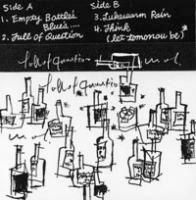 Side A
1. Empty Bottle's Blues....
2. Full of Question
Side B
3. Lukewarm Rain
4. Think
(Let tomorrow be)
full of question